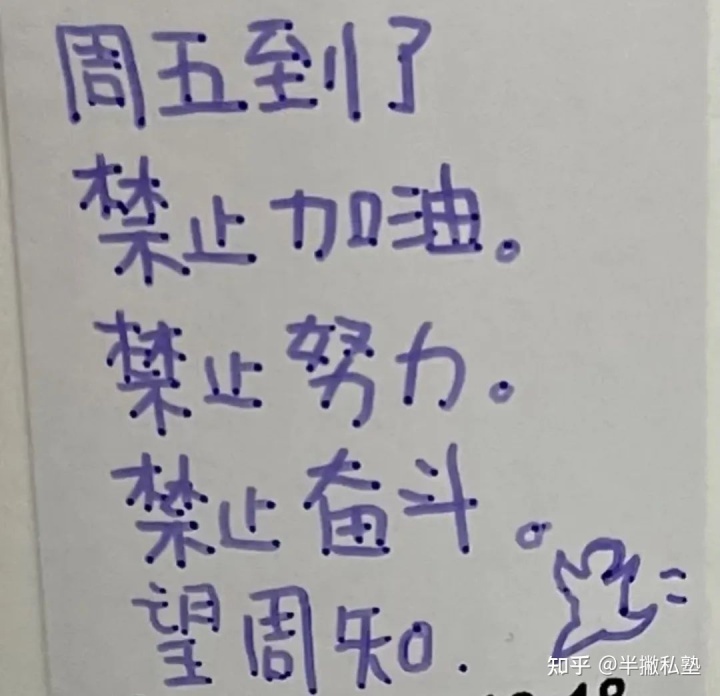 周五到了
禁止加油。
禁止努力。
禁止奋斗。
望周知.
知乎 @半撇私塾